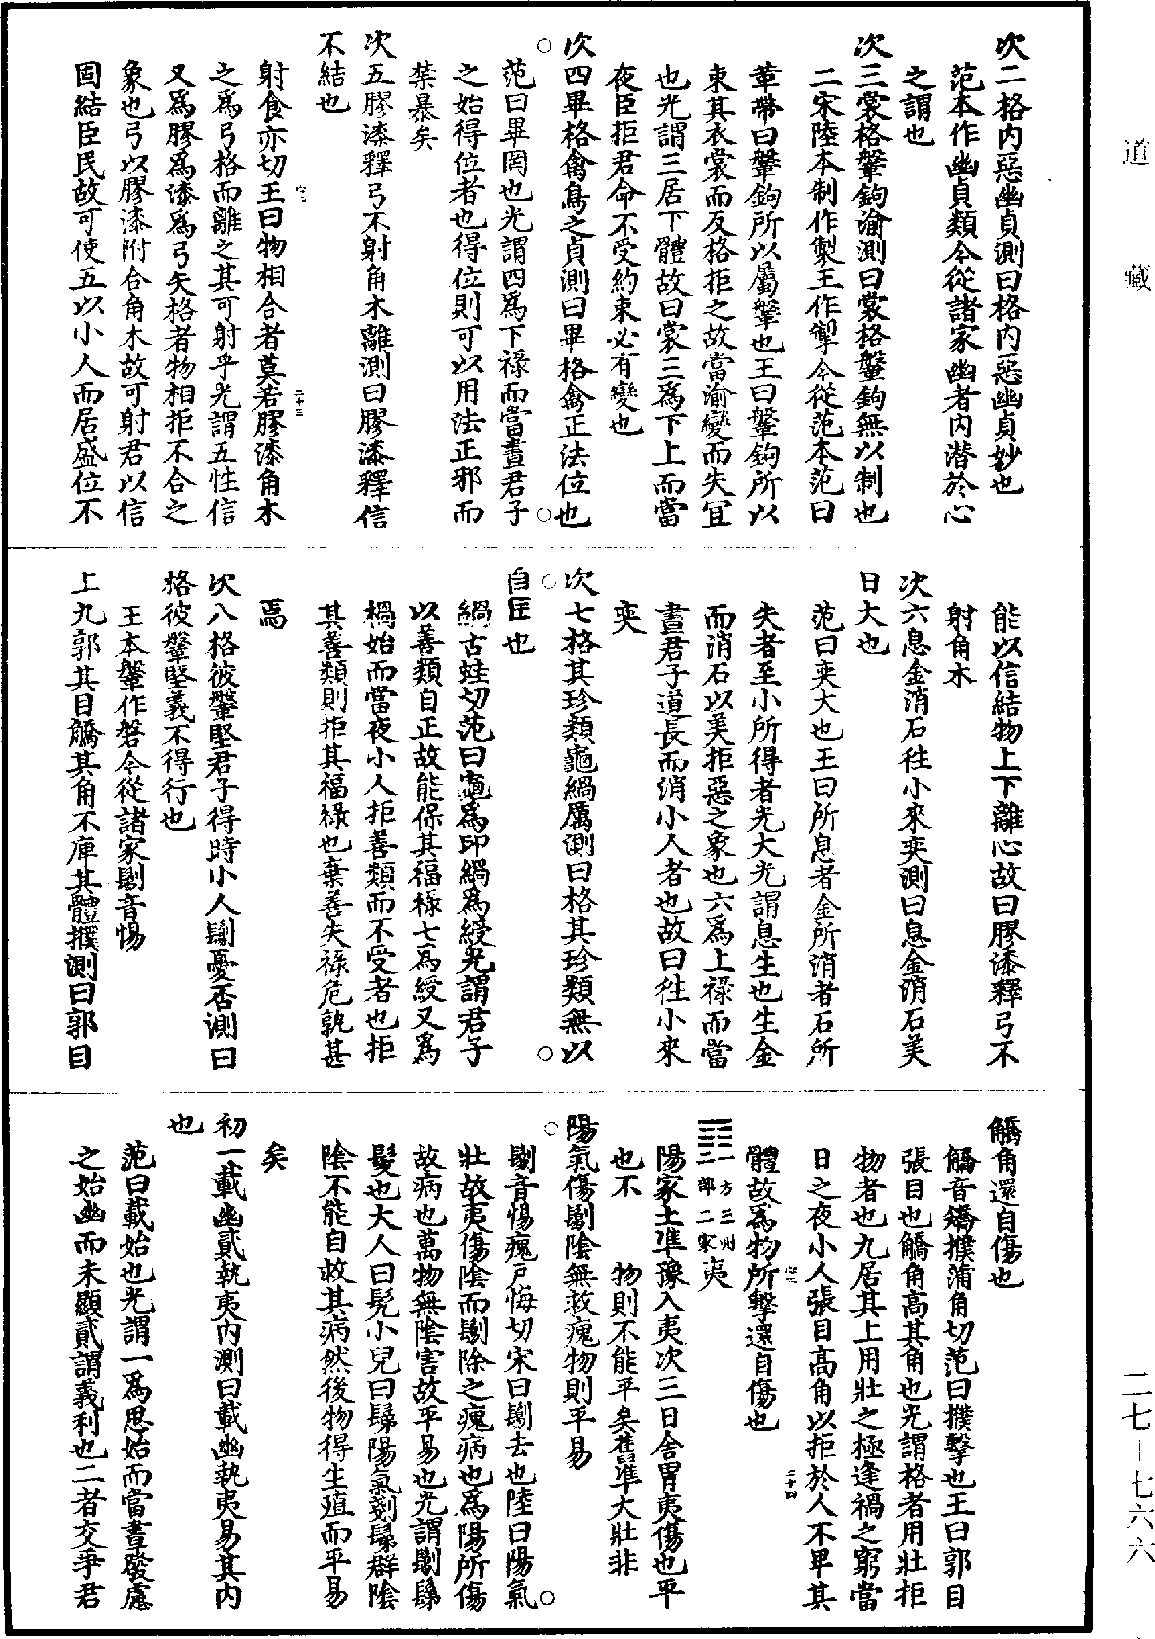 次二格內惡幽貞測曰格內惡幽貞妙也
范本作幽貞類今從諸家幽者內潜於心
之謂也
次三裳格鞶鉤渝測曰裳格鞶鉤無以制也
二宋陸本制作製王作掣今從范本范曰
革帶曰鞶鉤所以屬鞶也王曰鞶鉤所以
束其衣裳而反格拒之故當渝變而失宜
也光謂三居下體故曰裳三爲下上而當
夜臣拒君命不受約束必有變也
次四畢格禽鳥之貞測曰畢格禽正法位也
范曰畢罔也光謂四爲下禄而當晝君子
之始得位者也得位則可以用法正邪而
禁暴矣
次五膠漆釋弓不射角木離測曰膠漆釋信
不結也
射食亦切王曰物相合者莫若膠漆角木
之爲弓格而離之其可射乎光謂五性信
又爲膠爲漆爲弓矢格者物相拒不合之
象也弓以膠漆附合角木故可射君以信
固結臣民故可使五以小人而居盛位不
能以信結物上下離心故曰膠漆釋弓不
射角木
次六息金消石徃小來奕測曰息金消石美
日大也
范曰奕大也王曰所息者金所消者石所
失者至小所得者光大光謂息生也生金
而消石以美拒惡之象也六爲上禄而當
晝君子道長而消小人者也故曰徃小來
奕
次七格其珍類龜緺厲測曰格其珍類無以
自匡也
緺古蛙切范曰龜爲印緺爲綬光謂君子
以善類自正故能保其福禄七爲綬又爲
禍始而當夜小人拒善類而不受者也拒
其善類則拒其福禄也棄善失禄危孰甚
焉
次八格彼鞶堅君子得時小人鬄憂否測曰
格彼鞶堅義不得行也
王本鞶作磐今從諸家鬄音惕
上九郭其目觹其角不庳其體撲測曰郭目
觹角還自傷也
觹音矯撲蒲角切范曰撲擊也王曰郭目
張目也觹角高其角也光謂格者用壯拒
物者也九居其上用壯之極逢禍之窮當
日之夜小人張目高角以拒於人不卑其
體故爲物所擊還自傷也
一方三州二部二家夷
陽家土準豫入夷次三日舍胃夷傷也平
也不 物則不能平矣舊準大壯非
陽氣傷鬄陰無救瘣物則平易
鬄音惕瘣戸悔切宋曰鬄去也陸曰陽氣
壯故夷傷陰而鬄除之瘣病也爲陽所傷
故病也萬物無陰害故平易也光謂鬄鬀
髮也大人曰髡小兒曰鬀陽氣剗鬀群陰
陰不能自救其病然後物得生殖而平易
矣
初一載幽貳執夷內測曰載幽執夷易其內
也
范曰載始也光謂一爲思始而當晝發慮
之始幽而未顯貳謂義利也二者交爭君
道藏
二七—七六六